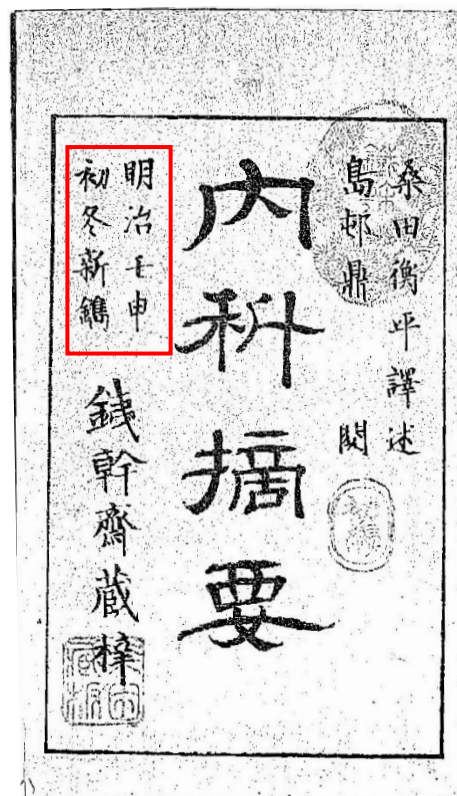 桑田衡平譯述
島邨鼎 閲
内科摘要
明治壬申
初冬新鐫
銕幹齋蔵梓